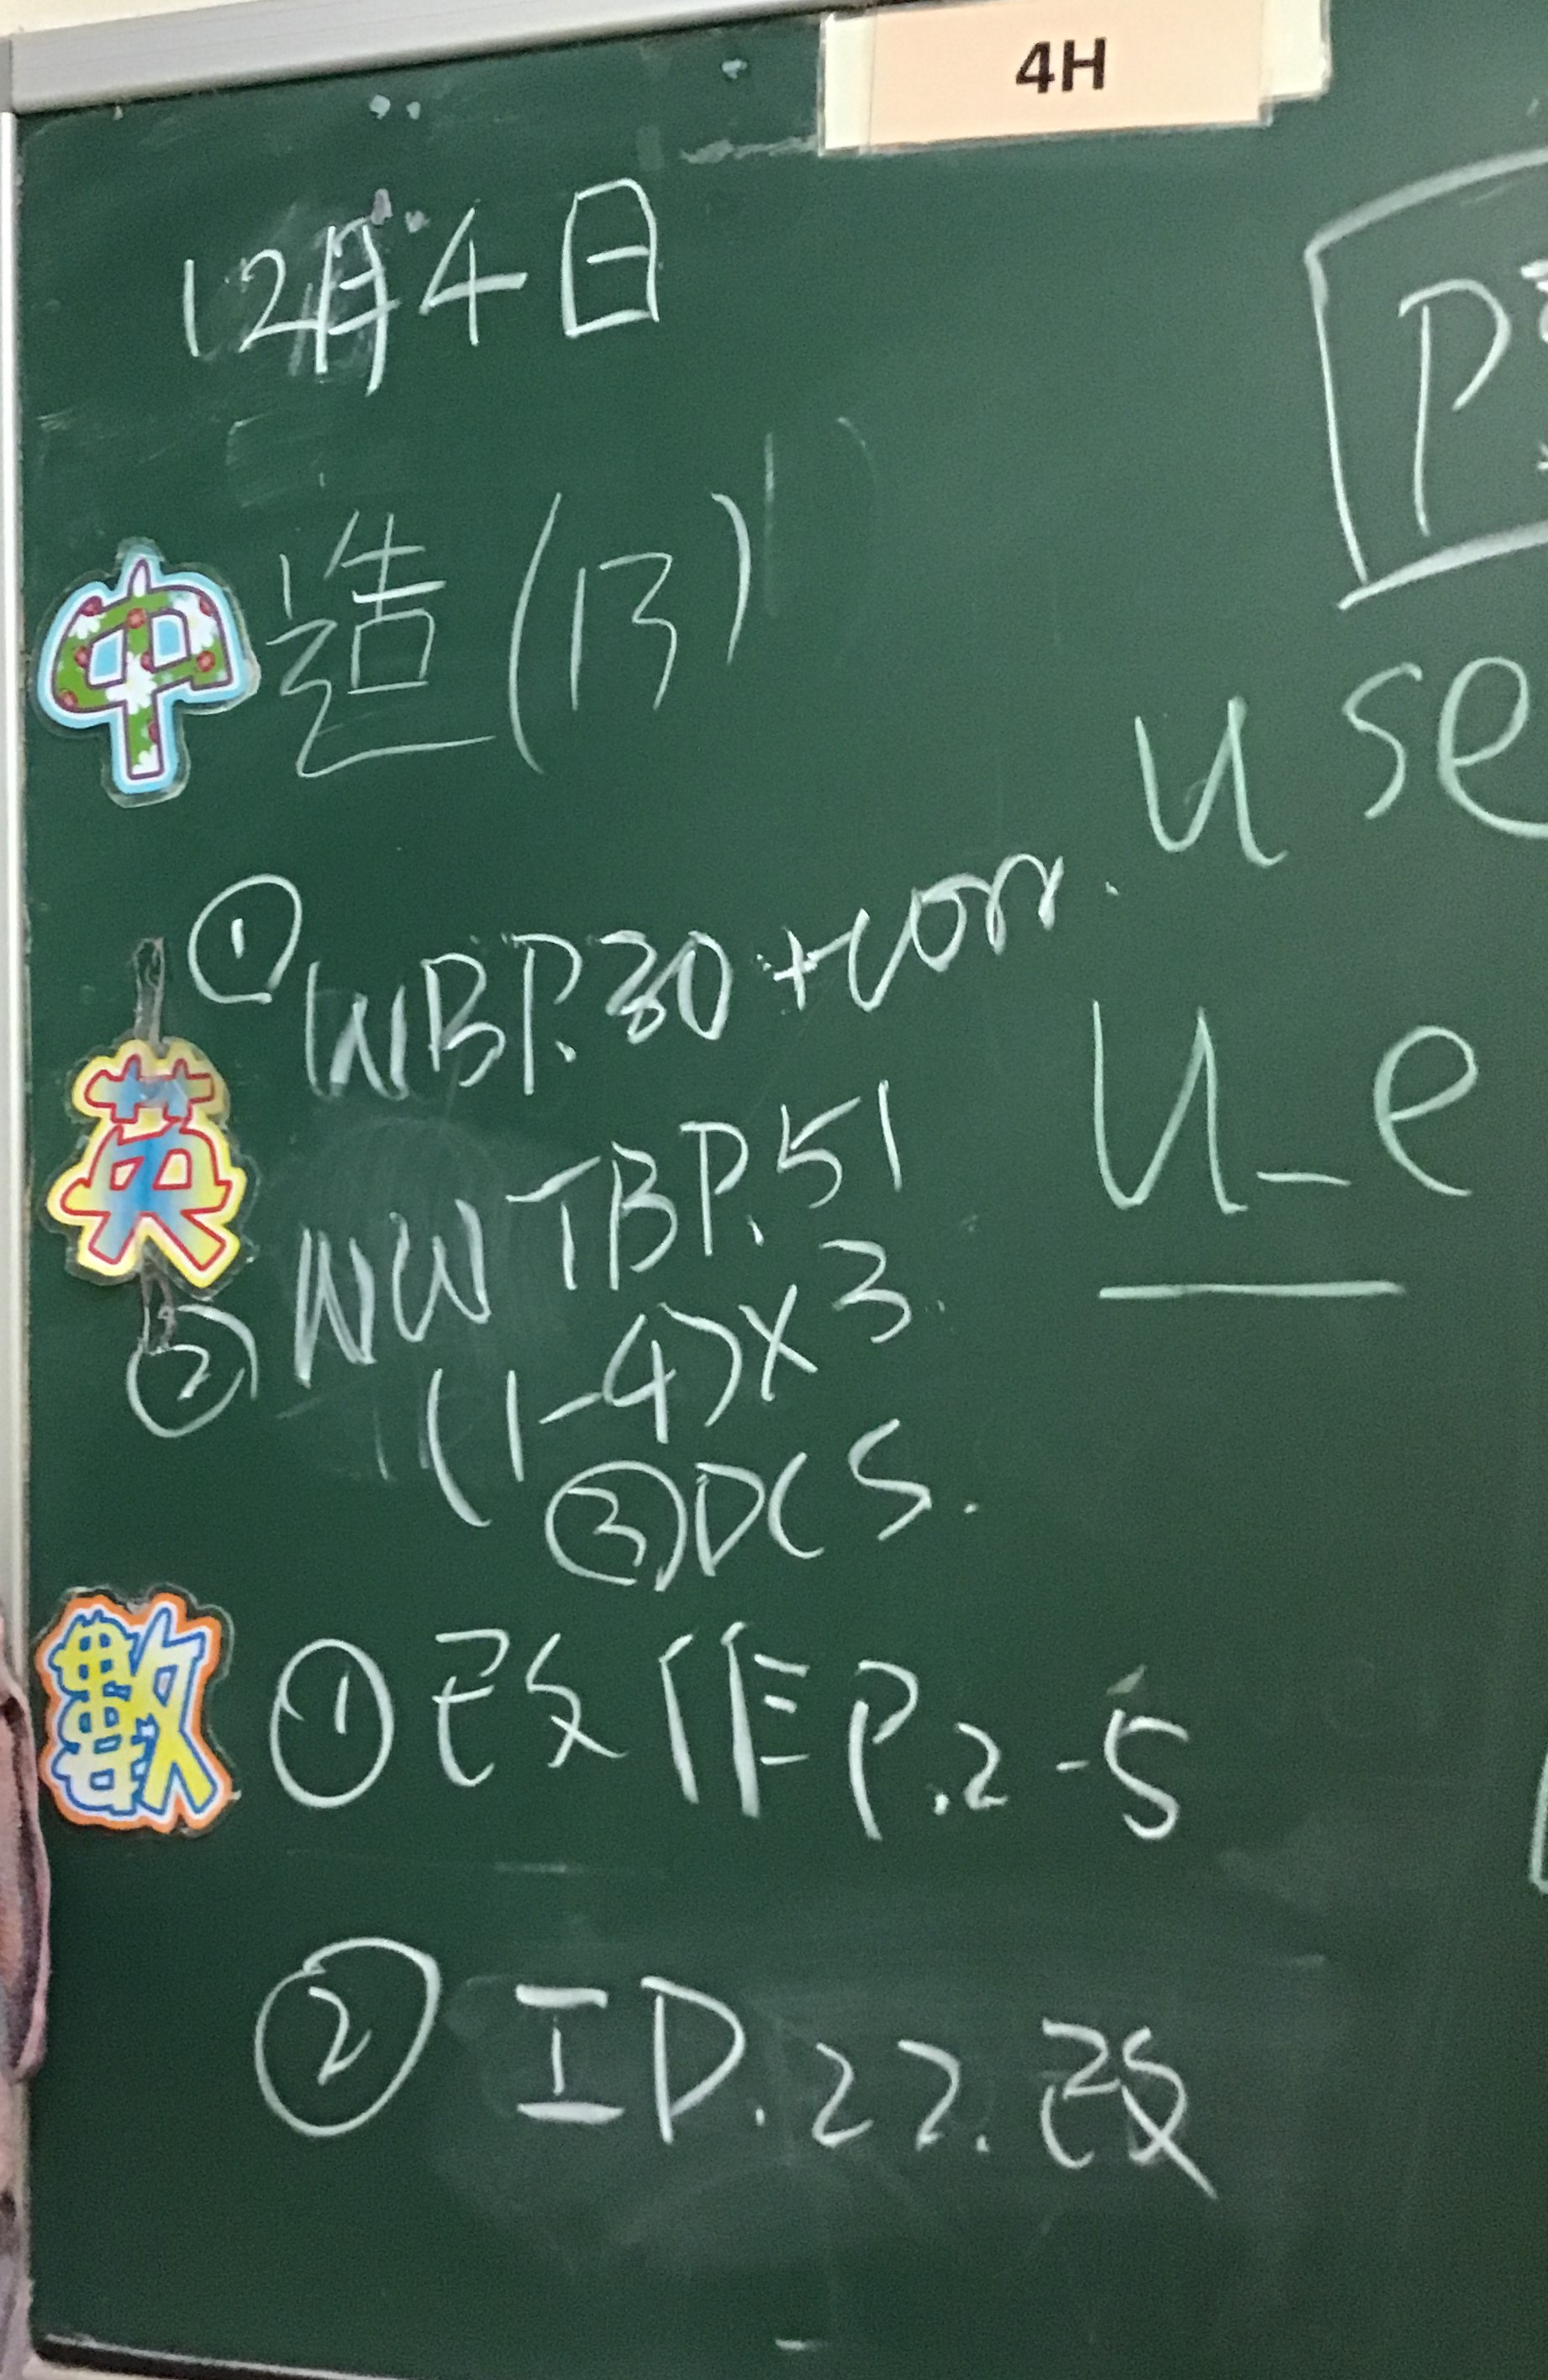 4H
12月4日
中 造(13)
英 ① WB P.30 + corr.
② NW TB P.51
(1-4)×3.
③ DCS.
數 ① 改作 P.2-5
② ID.22.改
P
use
u_e